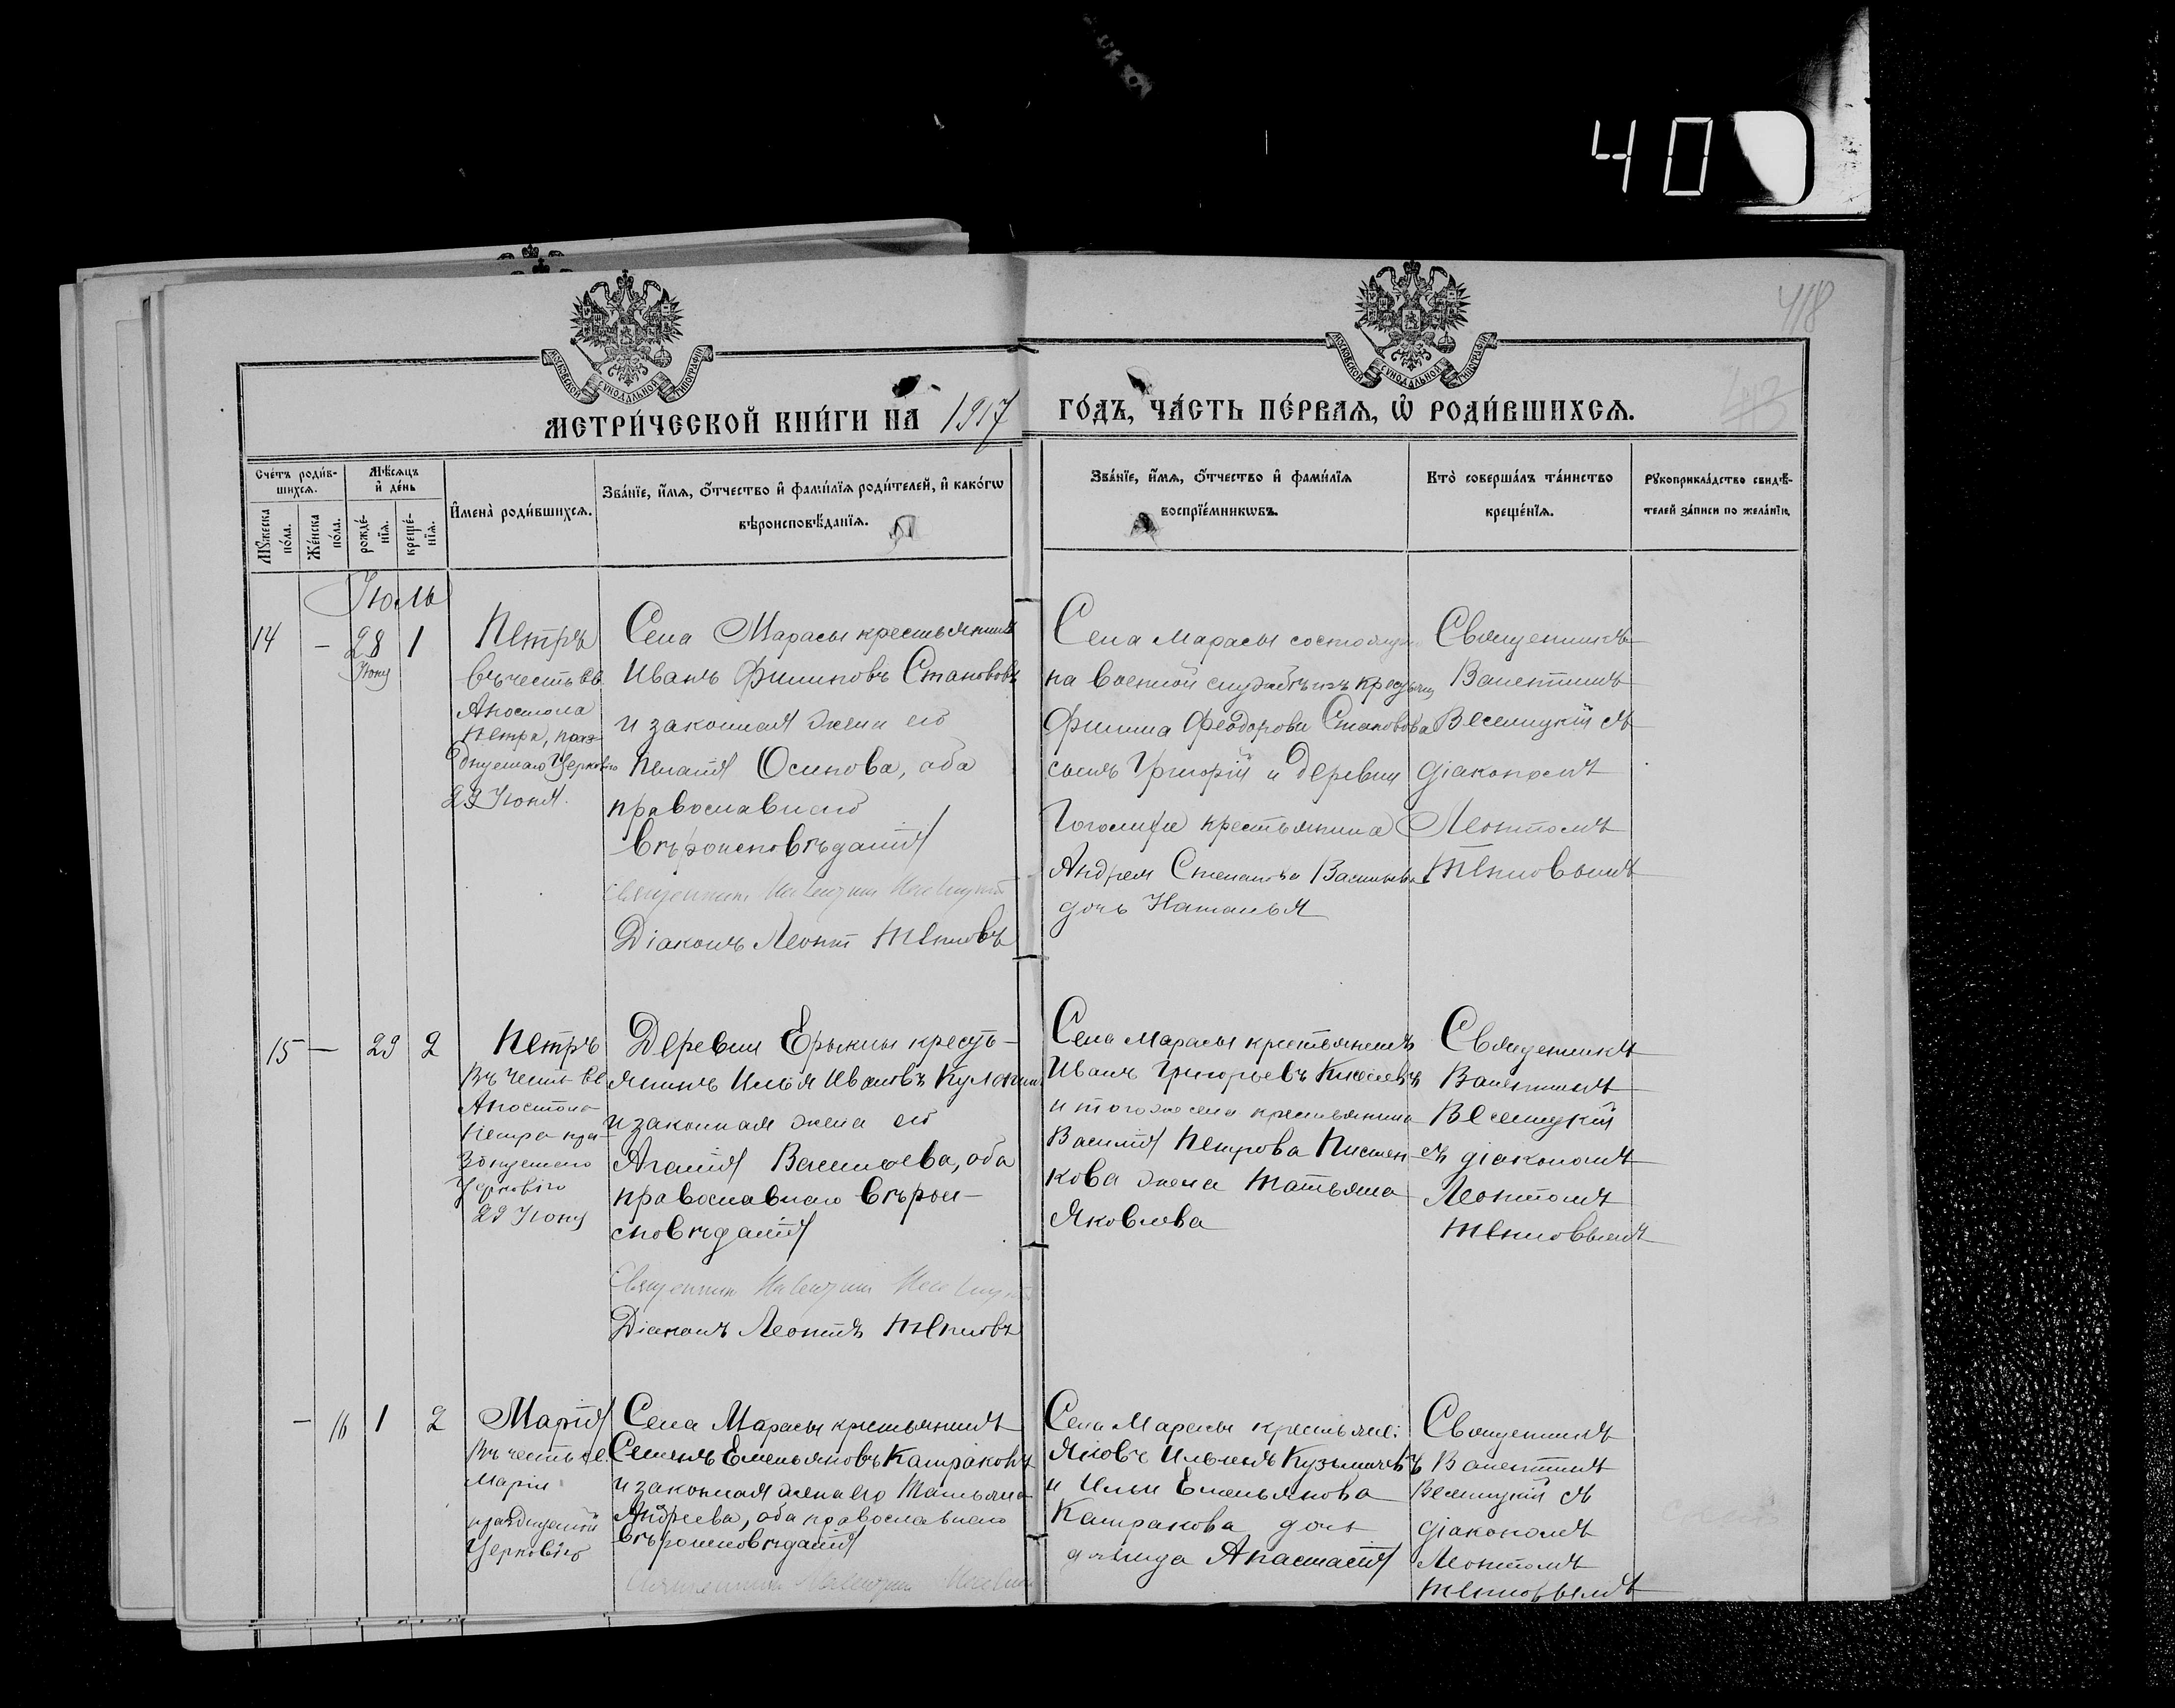 40
418
МОСКОВСКОЙ СѴНОДАЛЬНОЙ ТИПОГРАФІИ
МОСКОВСКОЙ СѴНОДАЛЬНОЙ ТИПОГРАФІИ
МЕТРИ́ЧЕСКОЙ КНИ́ГИ НА 1917 ГО́ДЪ, ЧА́СТЬ ПЕ́РВАѦ, Ѽ РОДИ́ВШИХСѦ.
Сче́тъ роди́в-
шихсѧ.
Мꙋ́жеска по́ла.
Же́нска по́ла.
Мѣ́сѧцъ и҆ де́нь
рожде́-
нїѧ.
креще́-
нїѧ.
И҆мена̀ роди́вшихсѧ.
Зва́нїе, и҆́мѧ, ѻ҆́тчество и҆ фами́лїѧ роди́телей, и҆ како́гѡ
вѣроисповѣ́данїѧ.
Зва́нїе, и҆́мѧ, ѻ҆́тчество и҆ фами́лїѧ
воспрїе́мникѡвъ.
Кто̀ соверша́лъ та́инство
креще́нїѧ.
Рꙋкоприкла́дство свидѣ́-
телей за́писи по жела́нїю.
Іюль
14 - 28 1
Іюня
Петръ
въ честь св.
Апостола
Петра, праз-
днуемаго Церковію
29 Іюня.
Села Марасы крестьянинъ
Иванъ Филиповъ Станововъ
и законная жена его
Пелагія Осипова, оба
православнаго
вѣроисповѣданія
Діаконъ Леонтій Тепловъ
Села Марасы состоящаго
на военной службѣ изъ крестьянъ
Филипа Феодорова Становова
сынъ Григорій и деревни
крестьянина
Андрея Степанова
дочь Наталья
Священникъ
Валентинъ
Веселицкій съ
діакономъ
Леонтіемъ
Тепловымъ
15 - 29 2
Петръ
Въ честь св
Апостола
Петра пра-
зднуемаго
Церковію
29 Іюня
Деревни Ерыклы кресть-
янинъ Илья Ивановъ
и законная жена его
Агафія Васильева, оба
православнаго вѣрои-
сповѣданія
Діаконъ Леонтій Тепловъ
Села Марасы крестьянинъ
Иванъ Григорьевъ Киселевъ
и того же села крестьянина
Василія Петрова
жена Татьяна
Яковлева
Священникъ
Валентинъ
Веселицкій
съ діакономъ
Леонтіемъ
Тепловымъ
- 16 1 2
Марія
Въ честь св.
Маріи
празднуемой
Церковію
Села Марасы крестьянинъ
Семенъ Емельяновъ Кашраковъ
и законная жена его Татьяна
Андреева, оба православнаго
вѣроисповѣданія
Села Марасы
Яковъ Ильинъ Кузьмичевъ
и Ильи Емельянова
Кашракова дочь
дѣвица Анастасія
Священникъ
Валентинъ
Веселицкій съ
діакономъ
Леонтіемъ
Тепловымъ